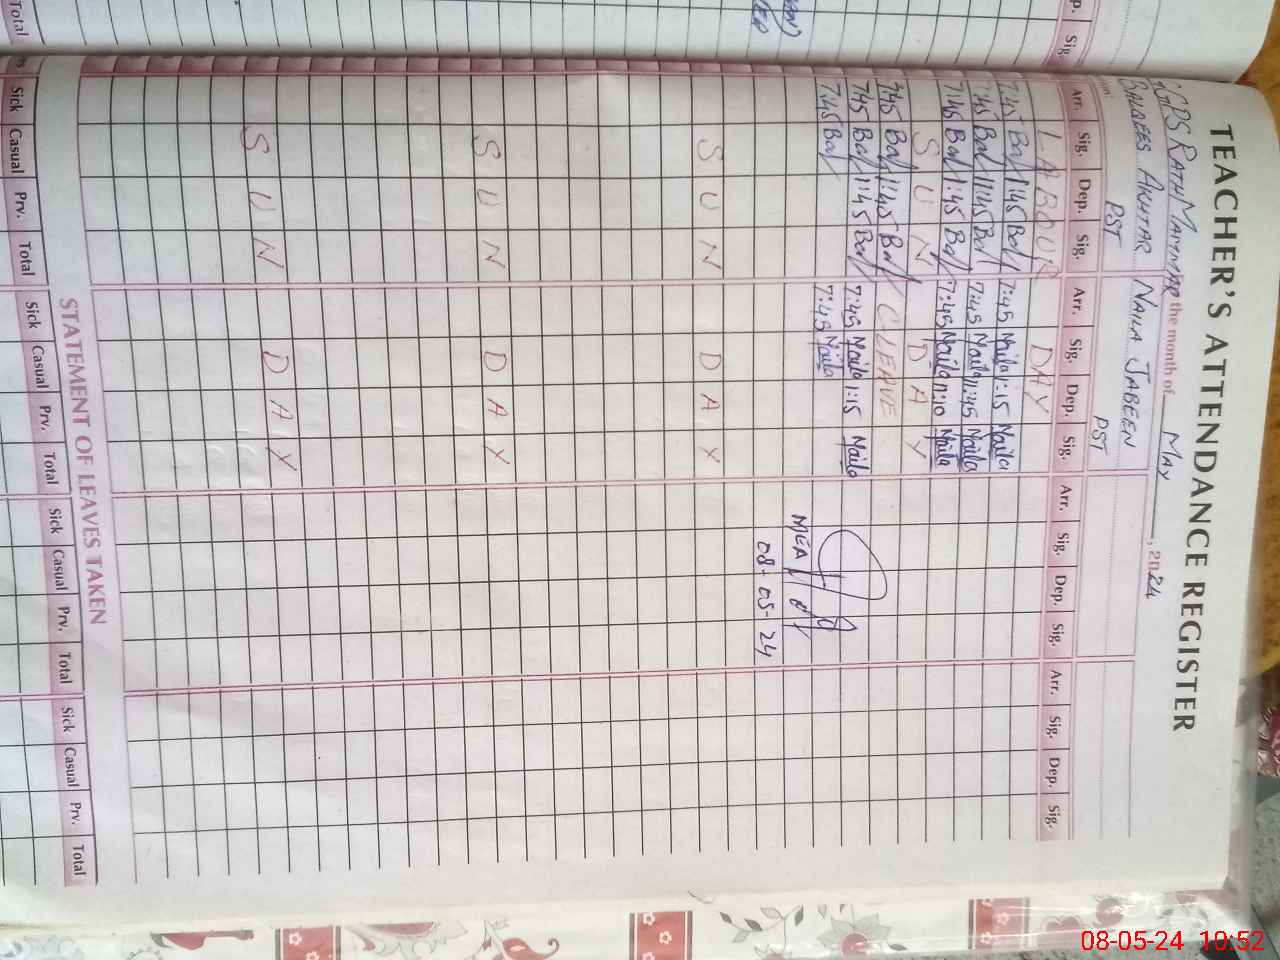 TEACHER'S ATTENDANCE REGISTER
GGPS RATH MAMMAD the month of MAY, 2024
BALQEES AKHTAR NAILA JABEEN
PST PST
Arr. Sig. Dep. Sig. Arr. Sig. Dep. Sig. Arr. Sig. Dep. Sig. Arr. Sig. Dep. Sig.
LABOUR DAY
7:45 Bal 1:45 Bal 7:45 Naila 1:15 Naila
7:45 Bal 11:45 Bal 7:45 Naila 11:45 Naila
7:45 Bal 1:45 Bal 7:45 Naila 11:10 Naila
SUN DAY
7:45 Bal 1:45 Bal C LEAVE
7:45 Bal 1:45 Bal 7:45 Naila 1:15 Naila
7:45 Bal 7:45 Naila
MEA
08-05-24
SUN DAY
SUN DAY
SUN DAY
STATEMENT OF LEAVES TAKEN
Sick Casual Prv. Total Sick Casual Prv. Total Sick Casual Prv. Total Sick Casual Prv. Total
Sig.
Total
08-05-24 10:52